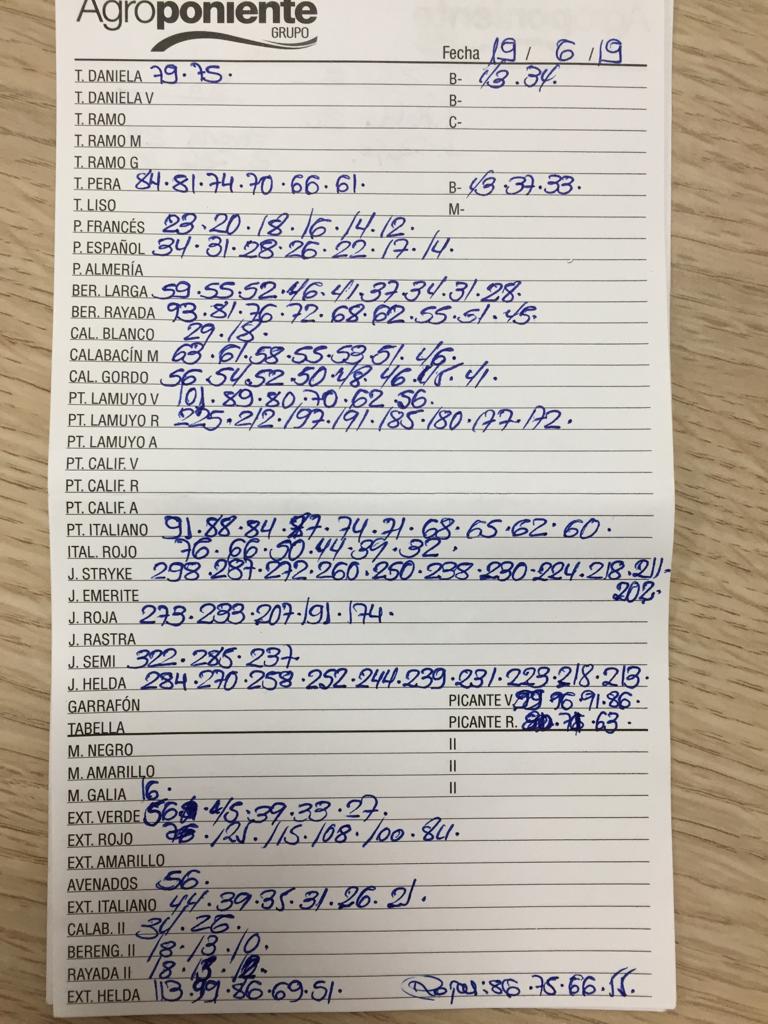 Agroponiente
GRUPO
Fecha 19 / 6 / 19
T. DANIELA 79.75. B- 43.34.
T. DANIELA V B-
T. RAMO C-
T. RAMO M
T. RAMO G
T. PERA 84.81.74.70.66.61. B- 43.37.33.
T. LISO M-
P. FRANCÉS 23.20.18.16.14.12.
P. ESPAÑOL 34.31.28.26.22.17.14.
P. ALMERÍA
BER. LARGA 59.55.52.46.41.37.34.31.28.
BER. RAYADA 93.81.76.72.68.62.55.51.45.
CAL. BLANCO 29.18.
CALABACÍN M 63.61.58.55.53.51.46.
CAL. GORDO 56.54.52.50.48.46.45.41.
PT. LAMUYO V 101.89.80.70.62.56.
PT. LAMUYO R 225.212.197.191.185.180.177.172.
PT. LAMUYO A
PT. CALIF. V
PT. CALIF. R
PT. CALIF. A
PT. ITALIANO 91.88.84.77.74.71.68.65.62.60.
ITAL. ROJO 76.66.50.44.39.32.
J. STRYKE 298.287.272.260.250.238.230.224.218.211.
J. EMERITE 202.
J. ROJA 273.233.207.191.174.
J. RASTRA
J. SEMI 322.285.237
J. HELDA 284.270.258.252.244.239.231.223.218.213.
GARRAFÓN PICANTE V. 99 96.91.86.
TABELLA PICANTE R. 63.
M. NEGRO II
M. AMARILLO II
M. GALIA 16. II
EXT. VERDE 56. 45.39.33.27.
EXT. ROJO .121.115.108.100.84.
EXT. AMARILLO
AVENADOS 56.
EXT. ITALIANO 44.39.35.31.26.21.
CALAB. II 34.26.
BERENG. II 18.13.10.
RAYADA II 18.13.12.
EXT. HELDA 113.99.86.69.51. Rojas: 86.75.66.55.